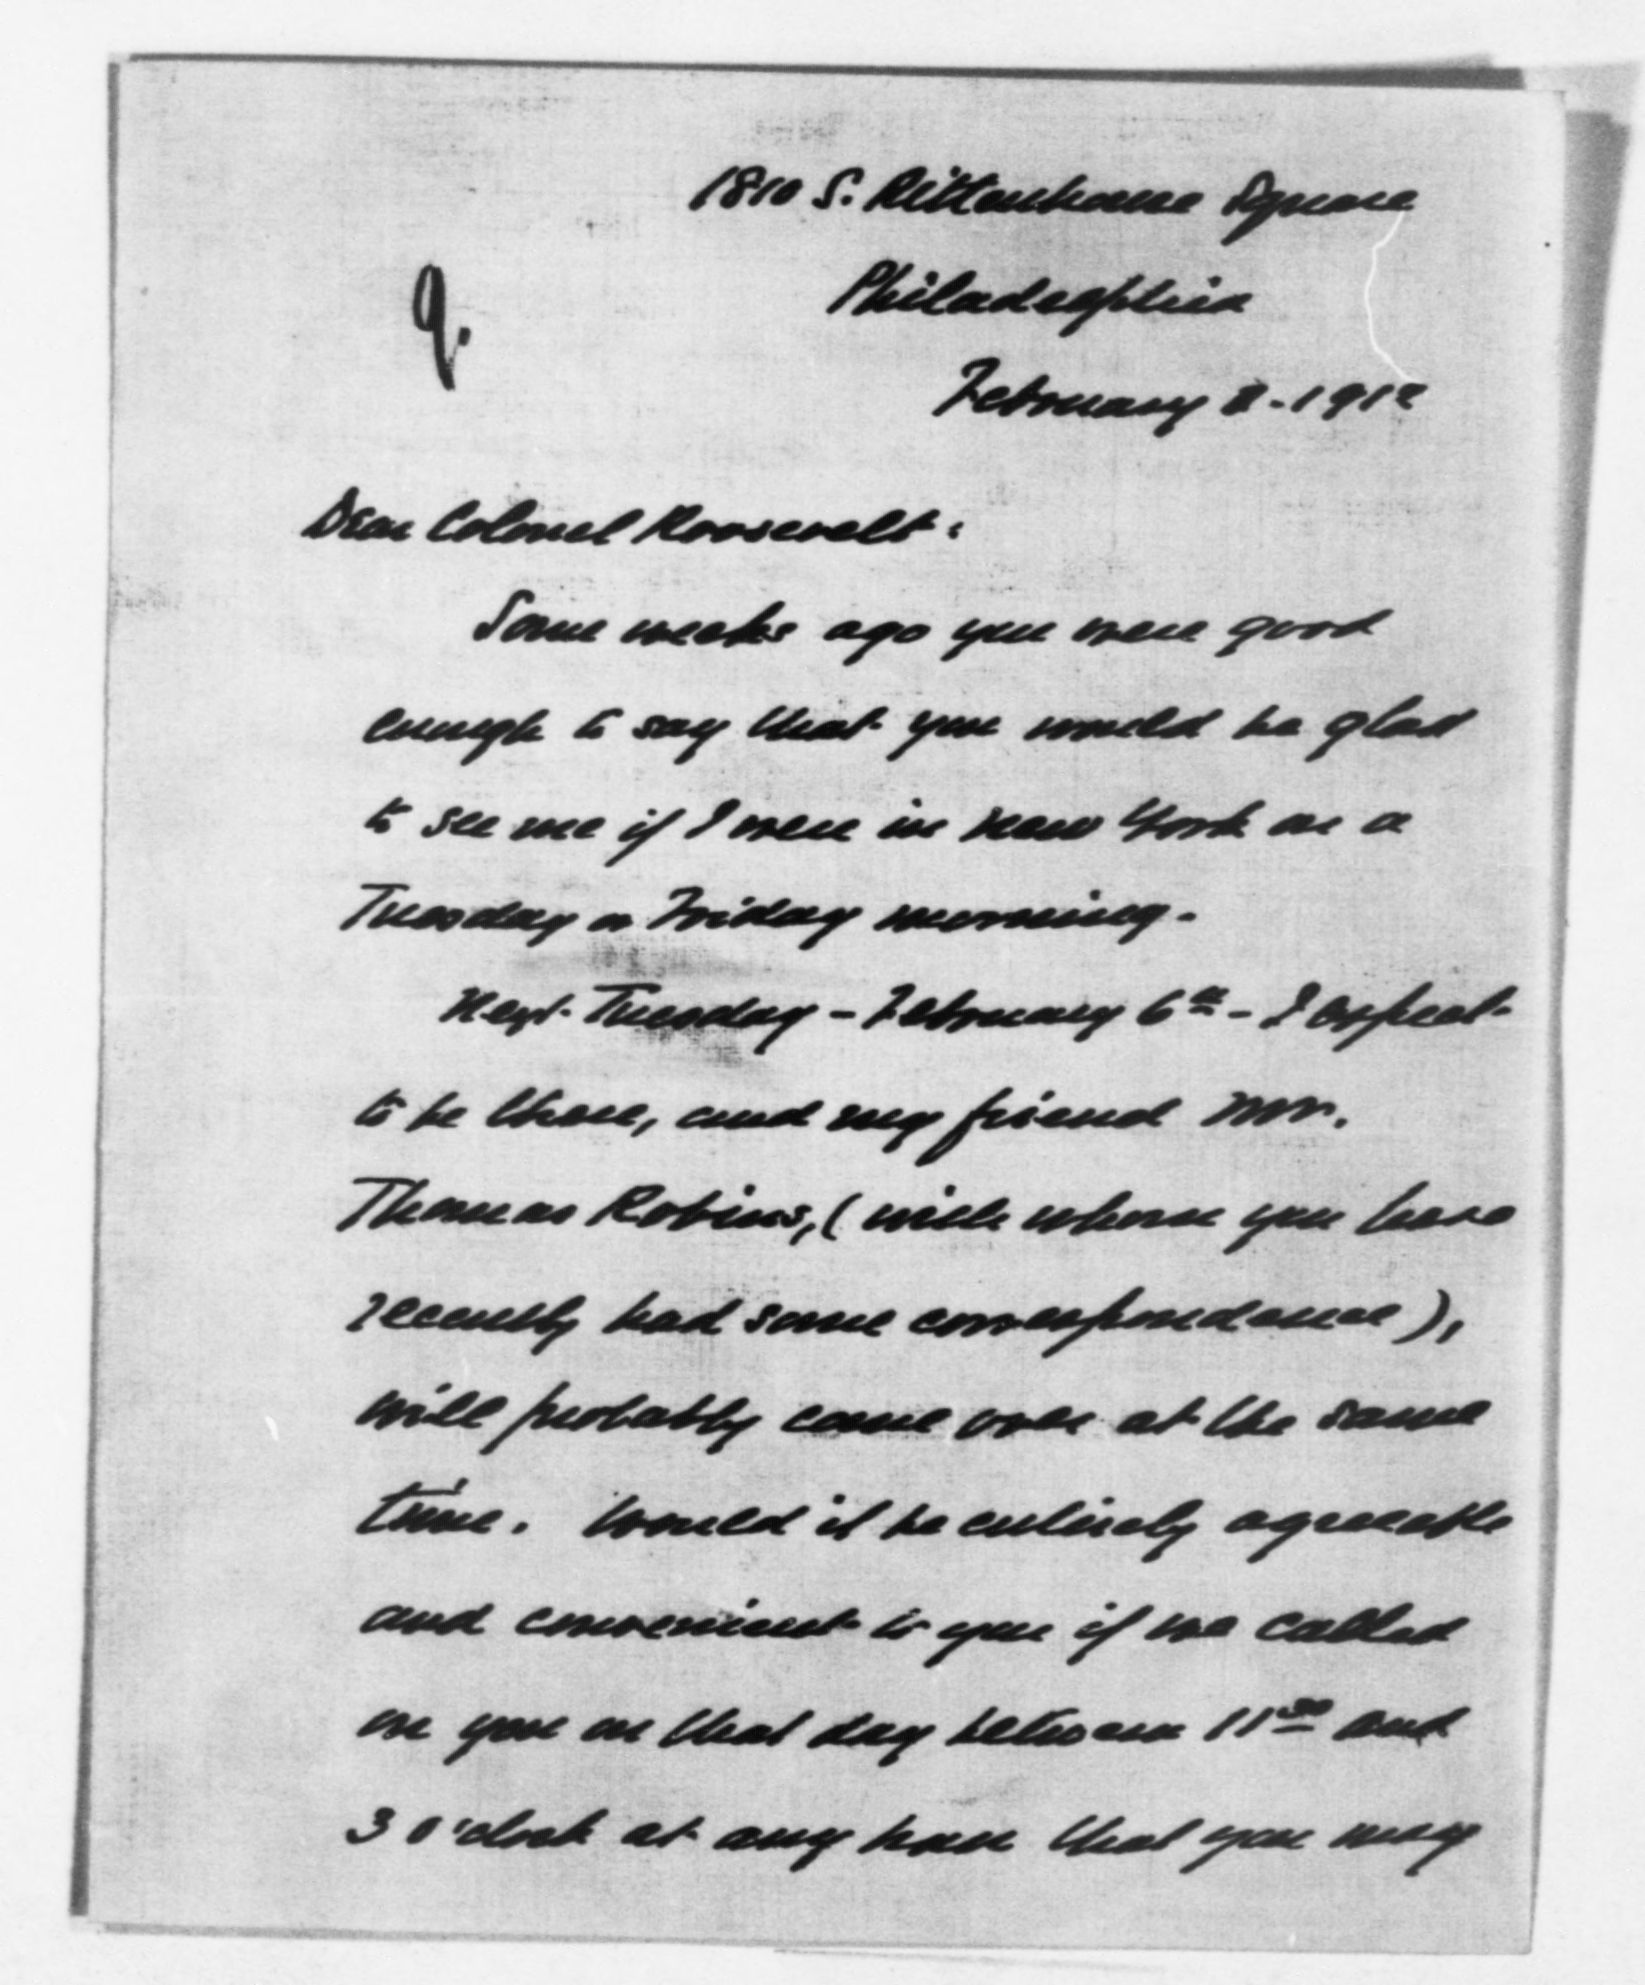 1810 S. Rittenhouse Square
Philadelphia
q.
February 2-1912
Dear Colonel Roosevelt:
Some weeks ago you were good
enough to say that you would be glad
to see me if I were in New York on a
Tuesday or Friday morning.
Next Tuesday - February 6th - I expect
to be there, and my friend Mr.
Thomas Robins, (with whom you have
recently had some correspondence),
will probably come over at the same
time. Would it be entirely agreeable
and convenient to you if we called
on you on that day between 11 30 and
3 o'clock at any hour that you may